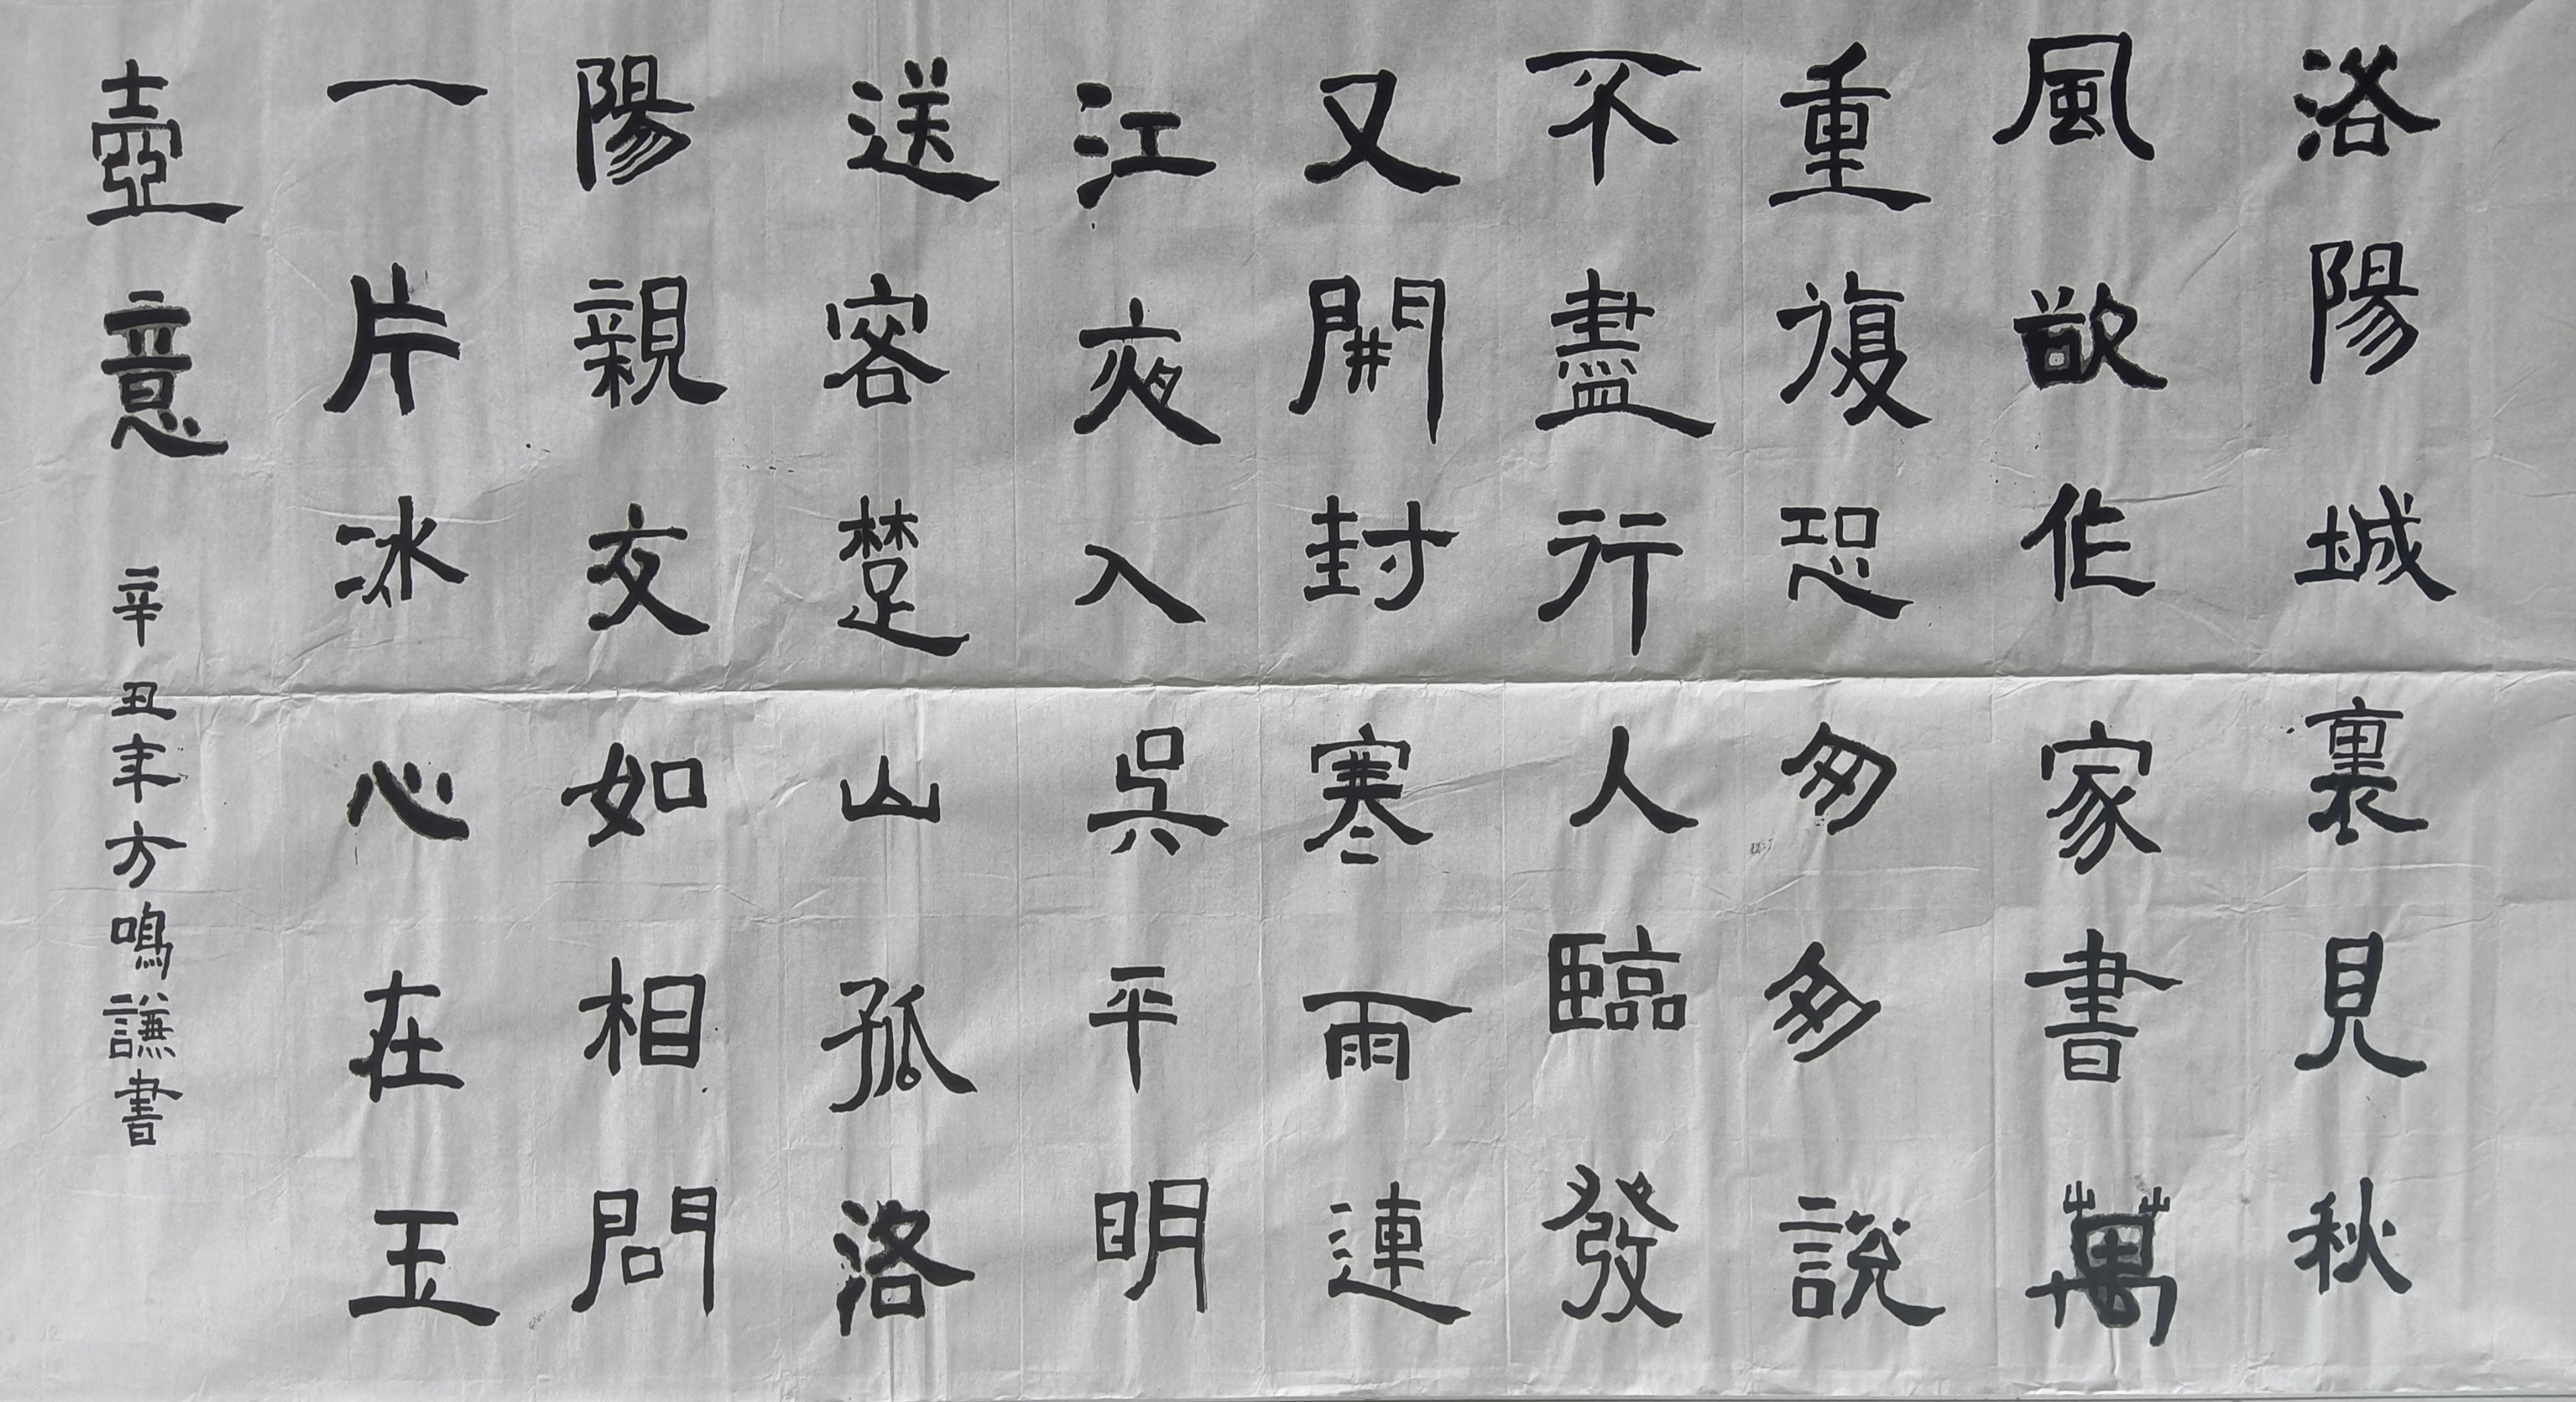 洛陽城裏見秋
風欲作家書萬
重復恐匆匆說
不盡行人臨發
又開封寒雨連
江夜入吳平明
送客楚山孤洛
陽親友如相問
一片冰心在玉
壺意辛丑年方鳴謙書